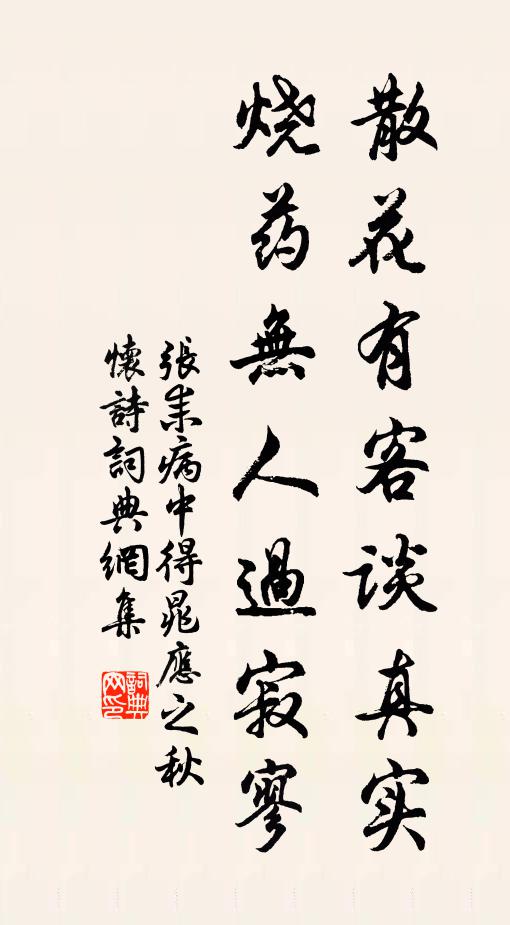 散花有客谈真实
烧药無人過寂寥
張耒病中得晁應之秋
懷詩詞典網集
詞典网印